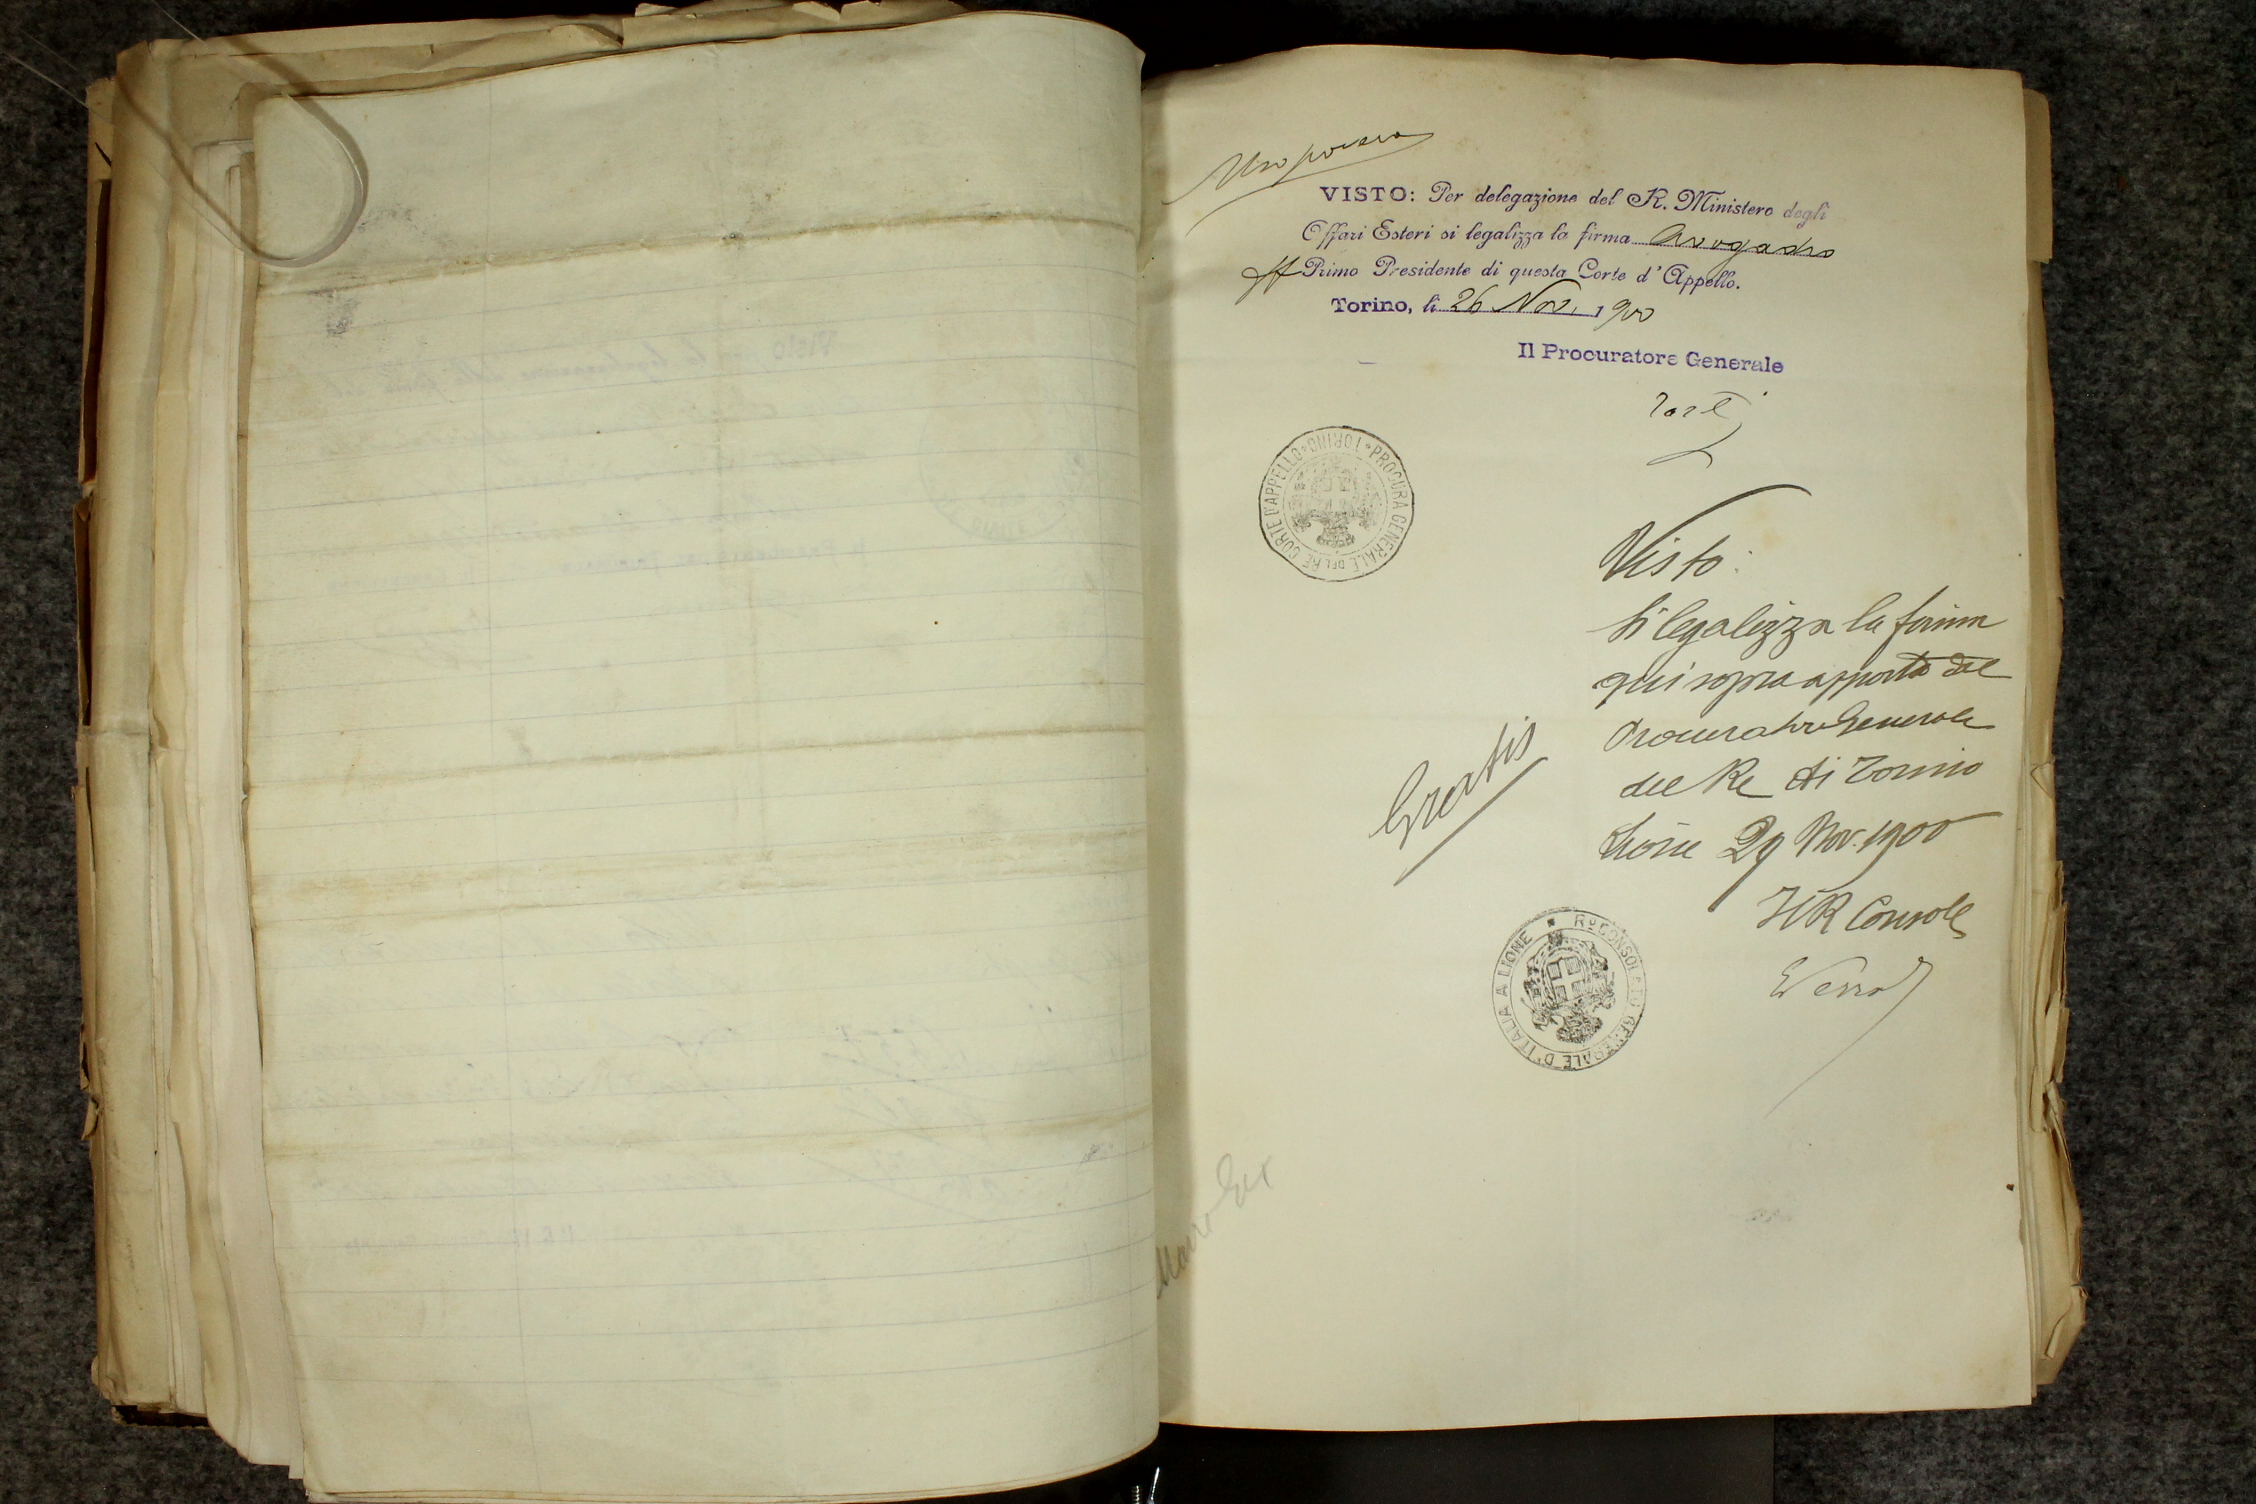 Uso povero
VISTO: Per delegazione del R. Ministero degli
Affari Esteri si legalizza la firma Avogadro
ff Primo Presidente di questa Corte d'Appello.
Torino, li 26 Nov. 1900
Il Procuratore Generale
PROCURA GENERALE DEL RE CORTE D'APPELLO TORINO
Visto:
Si legalizza la firma
qui sopra apposta del
Procuratore Generale
del Re di Torino
Lione 29 Nov. 1900
Il R Console
Gratis
Ro CONSOLATO GENERALE D'ITALIA A LIONE